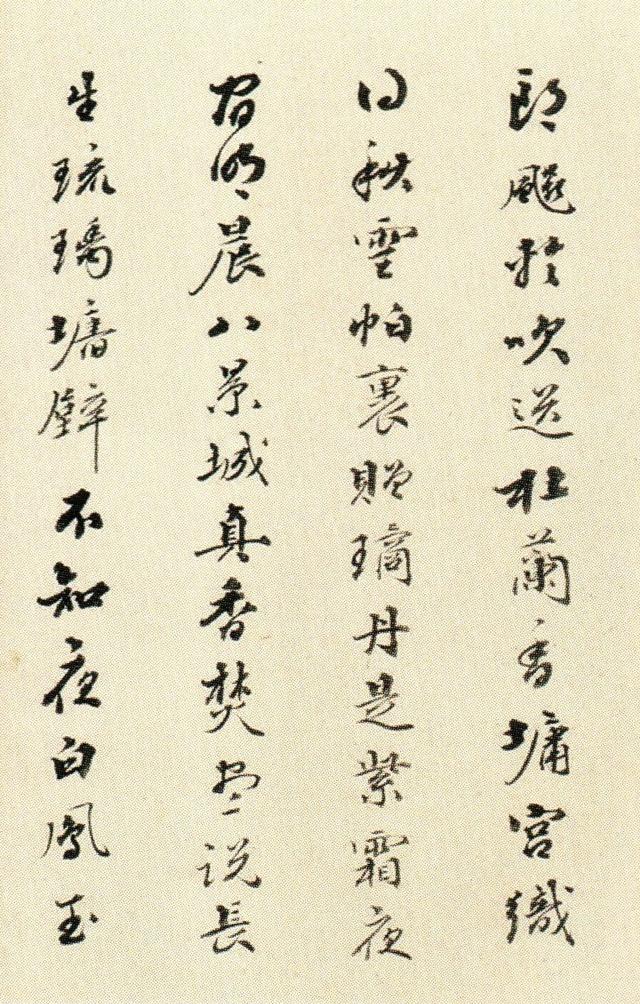 郎飈輕吹送杜蘭香墉宮織
日秋雲帕裏贈璚丹是紫霜夜
宿明晨八景城真香焚盡說長
生琉璃墻壁不知夜白鳳玉